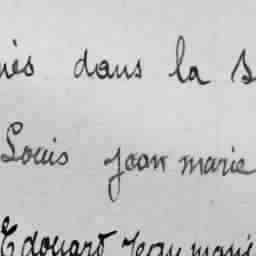 dans la
Louis Jean marie
Edouard Jean marie